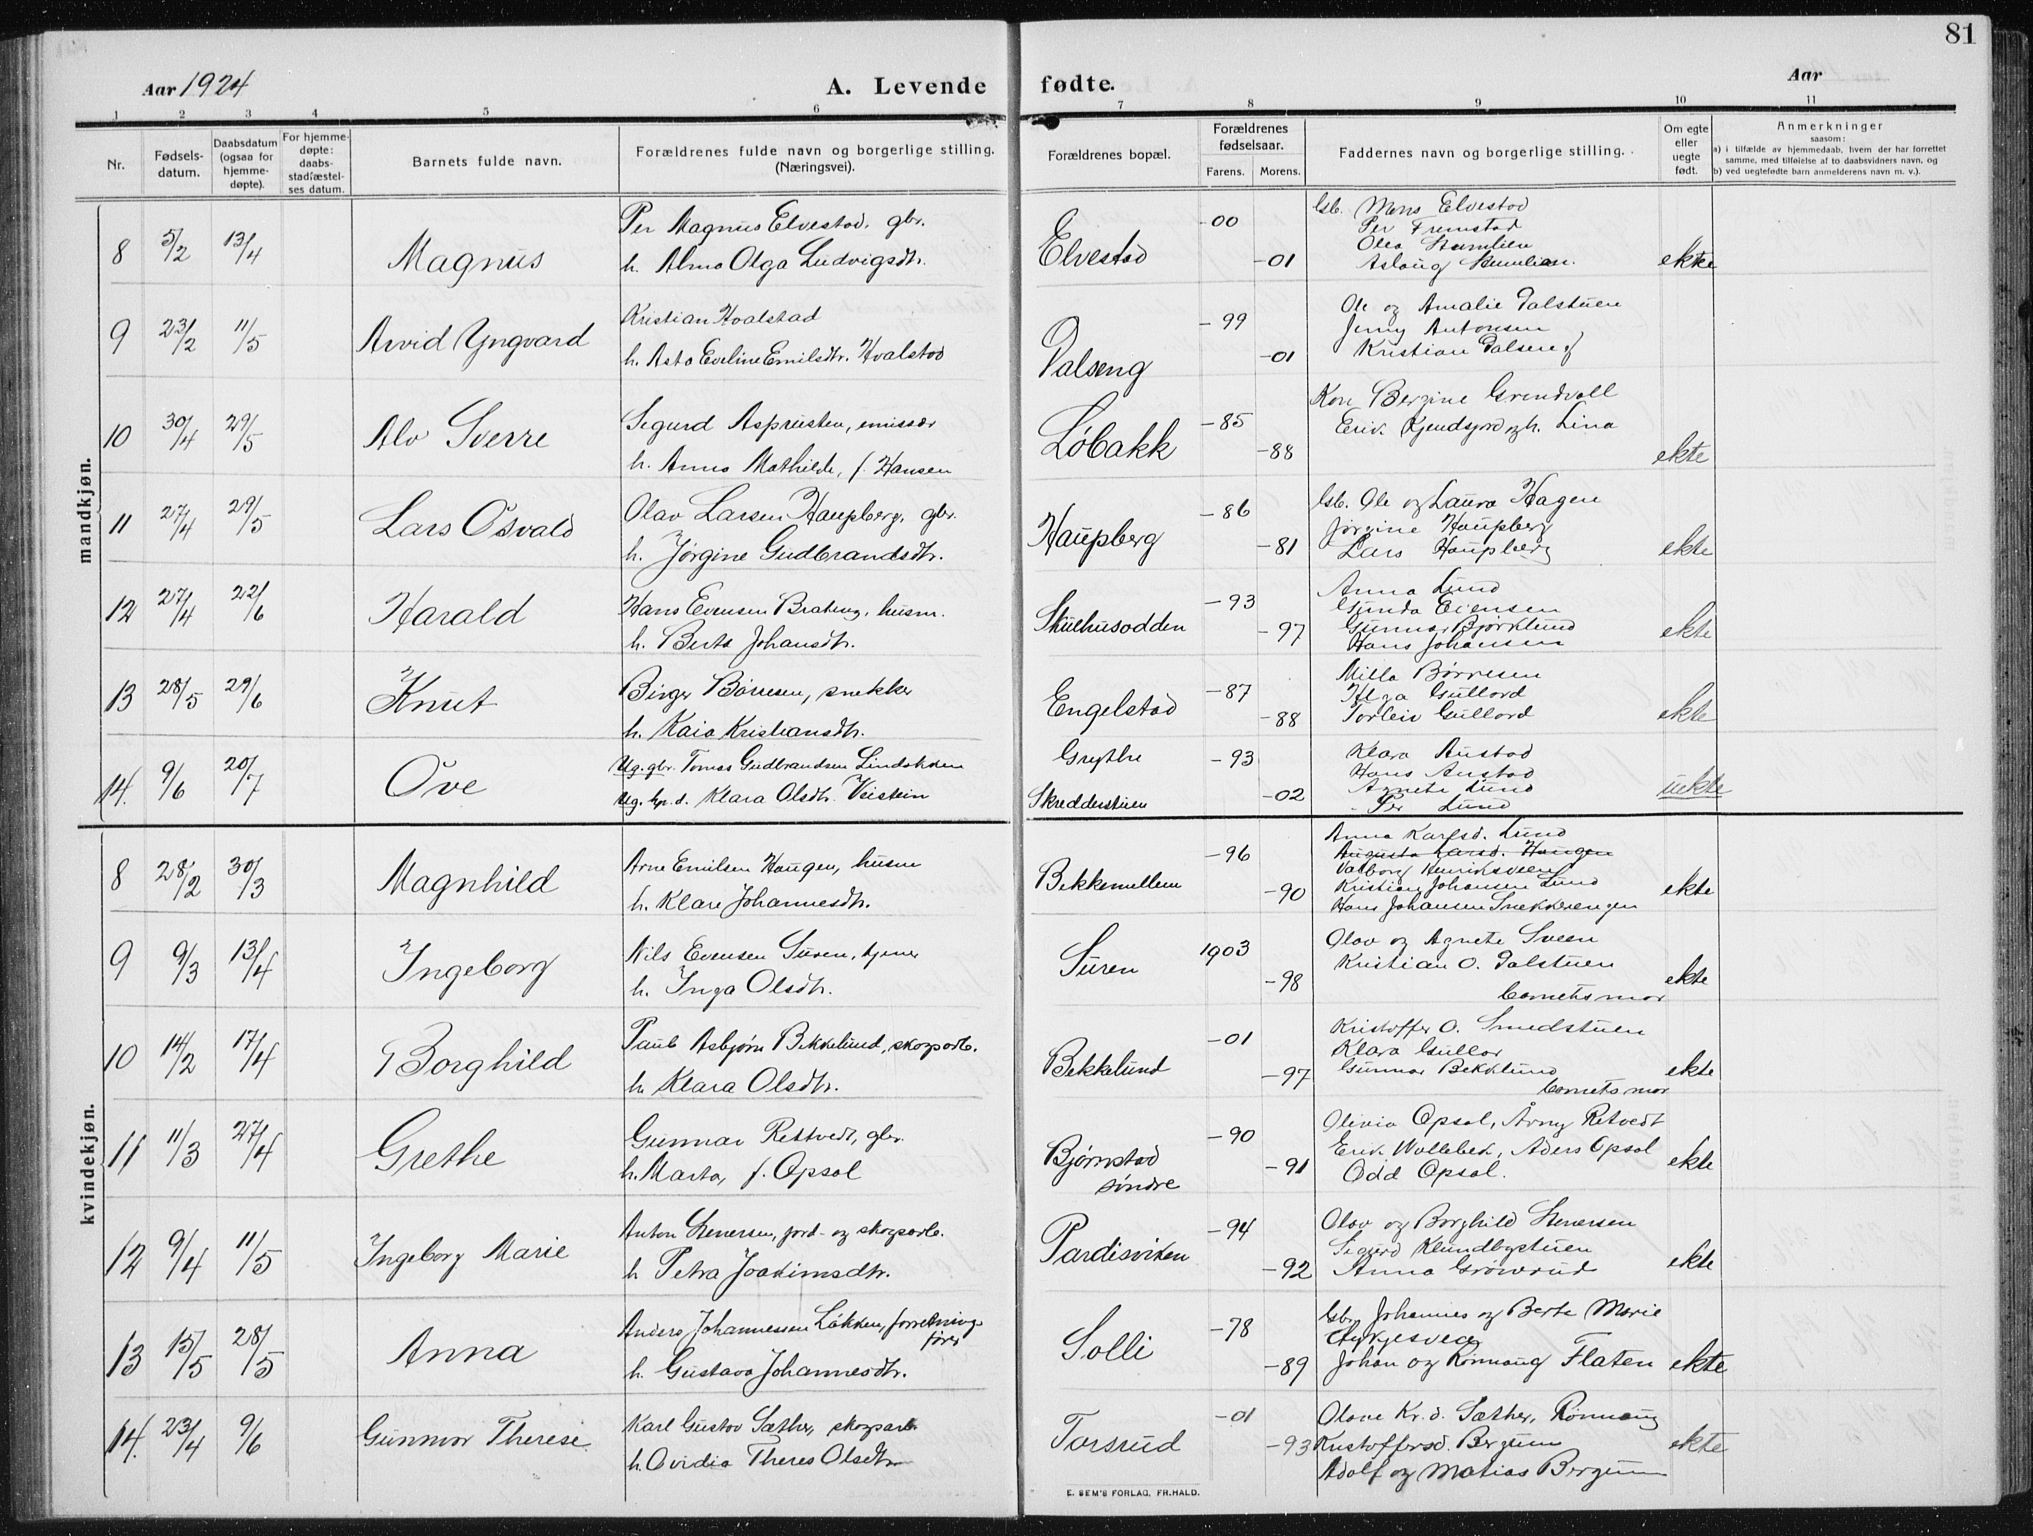 81
Aar 1924
A. Levende fødte.
Aar
1 2 3 4 5 6 7 8 9 10 11
Nr.
Fødsels-
datum.
Daabsdatum
(ogsaa for
hjemme-
døpte).
For hjemme-
døpte:
daabs-
stadfæstel-
ses datum.
Barnets fulde navn.
Forældrenes fulde navn og borgerlige stilling.
(Næringsvei).
Forældrenes bopæl.
Forældrenes
fødselsaar.
Farens. Morens.
Faddernes navn og borgerlige stilling.
Om egte
eller
uegte
født.
Anmerkninger
saasom:
a) i tilfælde av hjemmedaab, hvem der har forrettet
samme, med tilføielse af to daabsvidners navn, og
b) ved uegtefødte barn anmelderens navn m. v.).
mandkjøn.
8 5/2 13/4 Magnus
Per Magnus Elvestad, gbr.
h. Alma Olga Ludvigsdtr.
Elvestad -00 -01
Gb. Mons Elvestad
Per Fremstad
Olea
Aslaug
ekte
9 23/2 11/5 Arvid Yngvard
Kristian Hvalstad
h. Asta Eveline Emilsdtr. Hvalstad
Dalseng -99 -01
Ole og Amalie Dalstuen
Jenny Antonsen
Kristian Dalseng
10 30/4 29/5 Alv Sverre
Sigurd Aspruisten, emissær
h. Anna Mathilde, f. Hansen
Løbakk -85 -88
Kon Bergine Grendvoll
Eriv. og h. Lina
ekte
11 27/4 29/5 Lars Osvald
Olav Larsen Haugsberg, gbr.
h. Jørgine Gudbrandsdtr.
Haugsberg -86 -81
Gb. Ole og Laura Hagen
Jørgine Haugsberg
Lars Haugsberg
ekte
12 27/4 22/6 Harald
Hans Evensen Brateng, husm.
h. Berta Johansdtr.
Skulhusodden -93 -97
Anna Lund
Gunda Evensen
Gunnar Bjørklund
Hans Johansen
ekte
13 28/5 29/6 Knut
Birger Børresen, snekker
h. Kaia Kristiansdtr.
Engelstad -87 -88
Milla Børresen
Helga Gullord
Torleiv Gullord
ekte
14. 9/6 20/7 Ove
Ug. gbr. Tomas Gudbrandsen Lindsheim
Ug. gp. d. Klara Olsdtr. Veistein
Grythe
Skredderstuen -93 -02
Klara Austad
Hans Austad
Agnete Lund
Per Lund
uekte
kvindekjøn.
8 28/2 30/3 Magnhild
Arne Emilsen Haugen, husm
h. Klara Johannesdtr.
Bekkemellem -96 -90
Anna Karlsd. Lund
Augusta Larsd. Haugen
Valborg Henriksveen
Kristian Johansen Lund
Hans Johansen Snekkerengen
ekte
9 9/3 13/4 Ingeborg
Nils Evensen Suren, tjener
h. Inga Olsdtr.
Suren 1903 -98
Olav og Agnete Sveen
Kristian O. Dalstuen
barnets mor
ekte
10 14/2 17/4 Borghild
Paul Asbjørn Bekkelund, skogsarb.
h. Klara Olsdtr.
Bekkelund -01 -97
Kristoffer O. Smedstuen
Klara Gullor
Gunnar Bekklund
barnets mor
ekte
11 11/3 27/4 Grethe
Gunnar Rettvedt, gbr.
h. Marta, f. Opsal
Bjørnstad
søndre -90 -91
Olivia Opsal, Årny Retvedt
Erik Wollebek, Aders Opsal
Odd Opsal.
ekte
12 9/4 11/5 Ingeborg Marie
Anton Stenersen, jord- og skogsarb.
h Petra Joakimsdtr.
Pardisviken -94 -92
Olav og Borghild Stenersen
Sigurd Klundbystuen
Anna Grønrud
ekte
13 15/5 28/5 Anna
Anders Johannessen Løkken, forretnings-
fører
h. Gustava Johannesdtr.
Solli -78 -89
Gbr. Johannes og Berte Marie
Lykjesveg
Johan og Rønnaug Flaten
ekte
14. 23/4 9/6 Gunnor Therese
Karl Gustav Sæther, skogsarb.
h. Ovidia Theres Olsdtr
Torsrud -01 -93
Olave Kr. d. Sæther, Rønnaug
Kristoffersd. Bergum
Adolf og Matias Bergum
ekte
E. SEM'S FORLAG, FR.HALD.